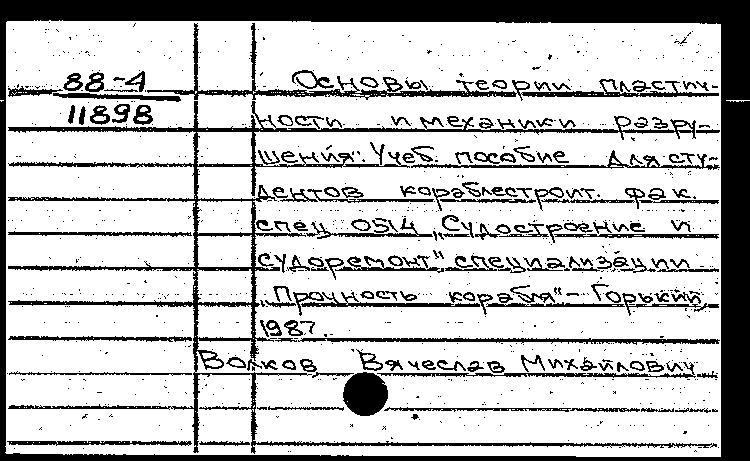 88-4
11898
Основы теории пластич-
ности и механики разру-
шения": Учеб. пособие для сту-
дентов кораблестроит. фак.
спец 0514 „Судостроение и
судоремонт" специализации
„Прочность корабля" - Горький,
1987.
Волков Вячеслав Михайлович